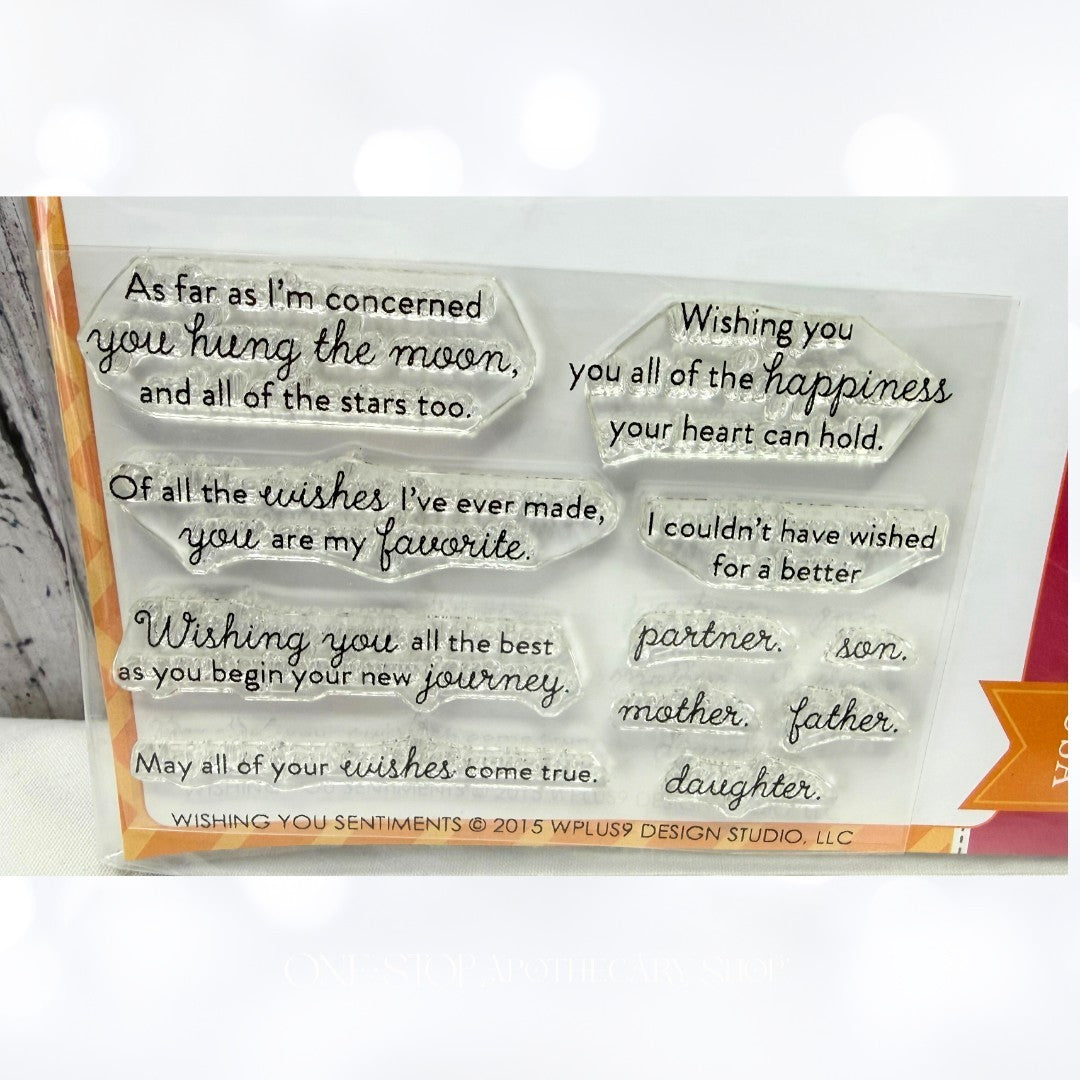 As far as I'm concerned
you hung the moon,
and all of the stars too.
Wishing you
you all of the happiness
your heart can hold.
Of all the wishes I've ever made,
you are my favorite.
I couldn't have wished
for a better
Wishing you all the best
as you begin your new journey.
partner. son.
mother. father.
daughter.
May all of your wishes come true.
WISHING YOU SENTIMENTS © 2015 WPLUS9 DESIGN STUDIO, LLC
ONE STOP APOTHECARY SHOP